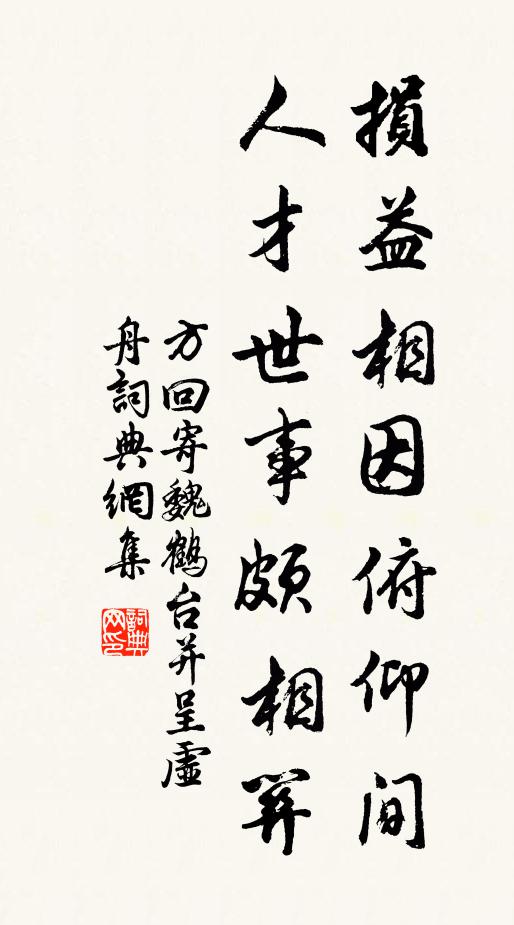 損益相因俯仰間
人才世事頗相關
方回寄魏鶴台并呈虛
舟詞典網集
詞典
网印